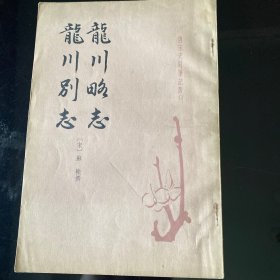 唐宋史料筆記叢刊
龍川略志
龍川別志
〔宋〕蘇轍撰